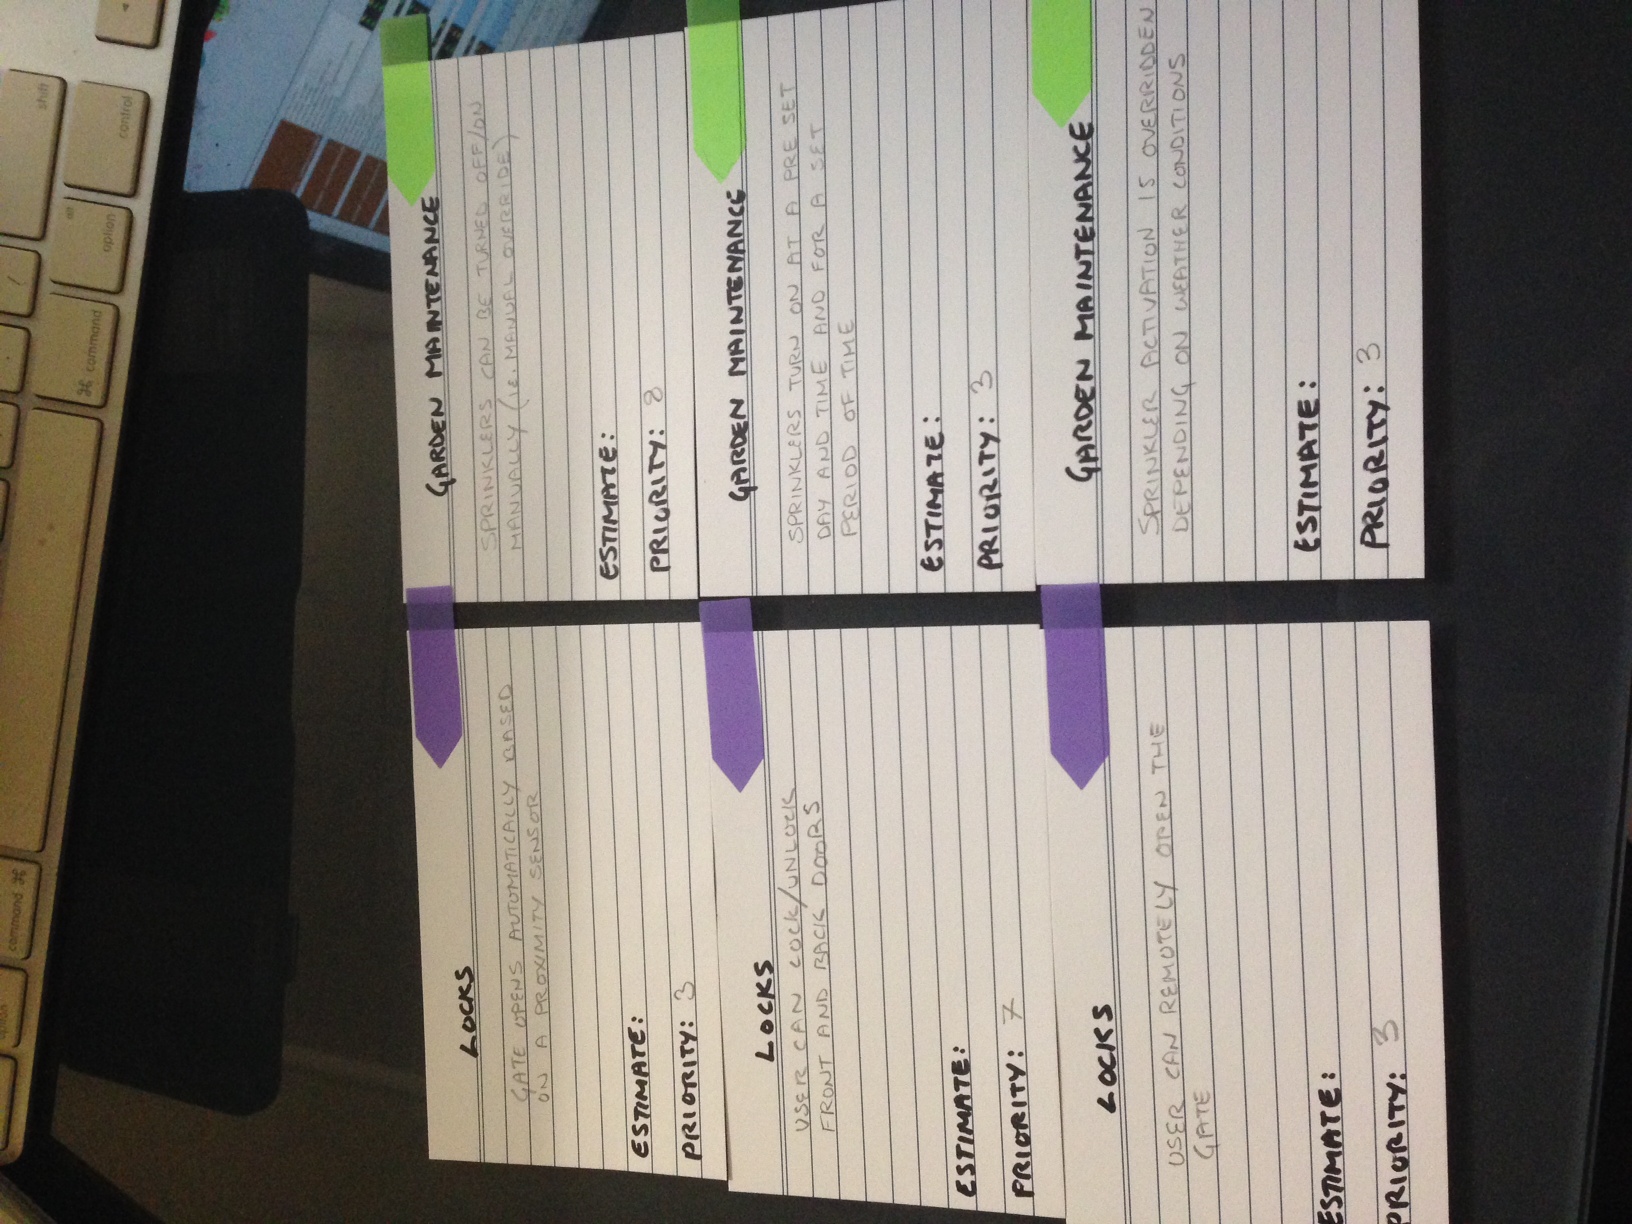 option
command ⌘
shift
⌘ command
alt
option
control
LOCKS
GATE OPENS AUTOMATICALLY BASED
ON A PROXIMITY SENSOR
ESTIMATE:
PRIORITY: 3
LOCKS
USER CAN LOCK/UNLOCK
FRONT AND BACK DOORS
ESTIMATE:
PRIORITY: 7
LOCKS
USER CAN REMOTELY OPEN THE
GATE
ESTIMATE:
PRIORITY: 3
GARDEN MAINTENANCE
SPRINKLERS CAN BE TURNED OFF/ON
MANUALLY (IE. MANUAL OVERRIDE)
ESTIMATE:
PRIORITY: 8
GARDEN MAINTENANCE
SPRINKLERS TURN ON AT A PRE SET
DAY AND TIME AND FOR A SET
PERIOD OF TIME
ESTIMATE:
PRIORITY: 3
GARDEN MAINTENANCE
SPRINKLER ACTIVATION IS OVERRIDDEN
DEPENDING ON WEATHER CONDITIONS
ESTIMATE:
PRIORITY: 3